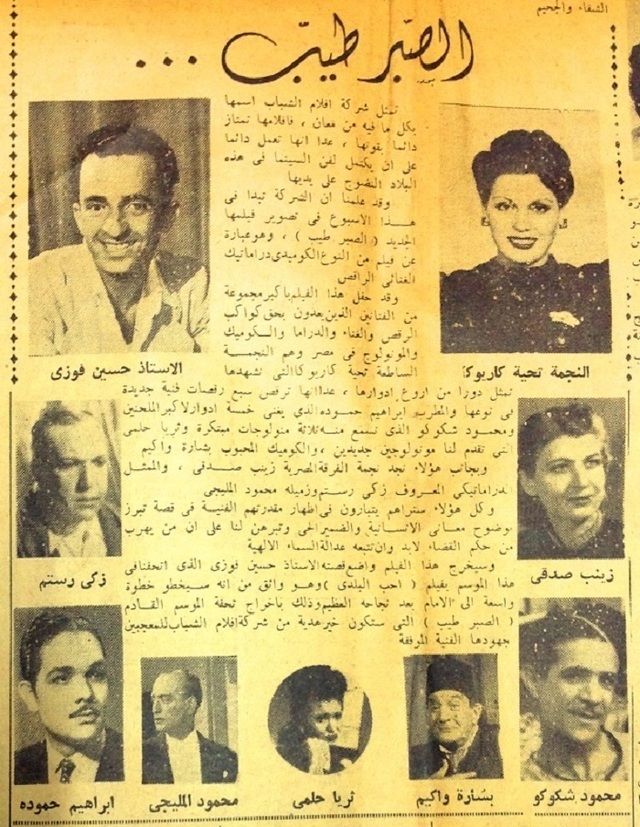 الشفاء والجحيم
الصبر طيب ...
تمثل شركة افلام الشباب اسمها
بكل ما فيه من معان ، فافلامها تمتاز
دائما بقوتها ، عدا انها تعمل دائما
على ان يكتمل لفن السينما فى هذه
البلاد النضوج على يديها
وقد علمنا ان الشركة تبدا فى
هذا الاسبوع فى تصوير فيلمها
الجديد ( الصبر طيب ) ، وهو عبارة
عن فيلم من النوع الكوميدى دراماتيك
الغنائى الراقص
وقد حفل هذا الفيلم باكبر مجموعة
من الفنانين الذين يعدون بحق كواكب
الرقص والغناء والدراما والكوميك
والمونولوج فى مصر وهم النجمة
الساطعة تحية كاريوكا التى نشهدها
تمثل دورا من اروع ادوارها ، عدا انها ترقص سبع رقصات فنية جديدة
فى نوعها والمطرب ابراهيم حموده الذى يغنى خمسة ادوار لاكبر الملحنين
ومحمود شكوكو الذى نسمع منه ثلاثة منولوجات مبتكرة وثريا حلمى
التى تقدم لنا مونولوجين جديدين ، والكوميك المحبوب بشارة واكيم
وبجانب هؤلاء نجد نجمة الفرقة المصرية زينب صدقى ، والممثل
الدراماتيكى المعروف زكى رستم وزميله محمود المليجى
وكل هؤلاء ستراهم يتبارون فى اظهار مقدرتهم الفنية فى قصة تبرز
بوضوح معانى الانسانية والضمير الحى وتبرهن لنا على ان من يهرب
من حكم القضاء لابد وان تتبعه عدالة السماء الالهية
وسيخرج هذا الفيلم واضع قصته الاستاذ حسين فوزى الذى اتحفنا فى
هذا الموسم بفيلم ( احب البلدى ) وهو واثق من انه سيخطو خطوة
واسعة الى الامام بعد نجاحه العظيم وذلك باخراج تحفة الموسم القادم
( الصبر طيب ) التى ستكون خير هدية من شركة افلام الشباب للمعجبين
بجهودها الفنية الموفقة
النجمة تحية كاريوكا
الاستاذ حسين فوزى
زينب صدقى
زكى رستم
محمود شكوكو
بشارة واكيم
ثريا حلمى
محمود المليجى
ابراهيم حموده